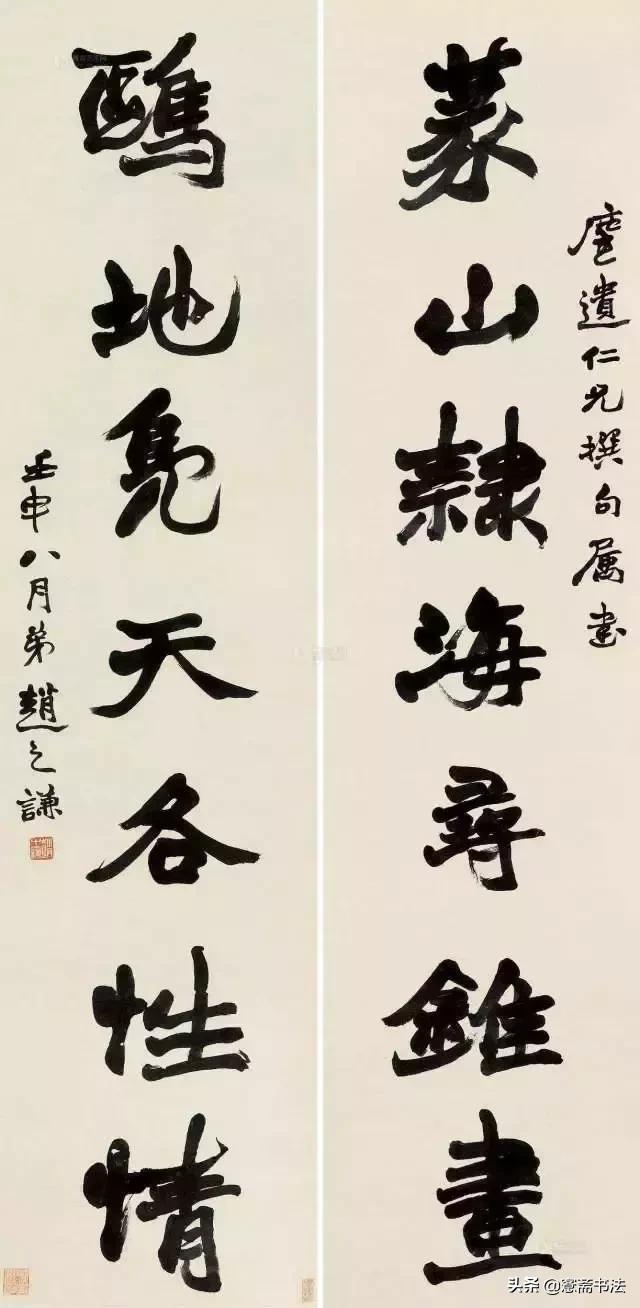 遺仁兄撰句属書
篆山隸海尋錐畫
鷗地鳧天各性情
壬申八月弟趙之謙
头条 @斋书法